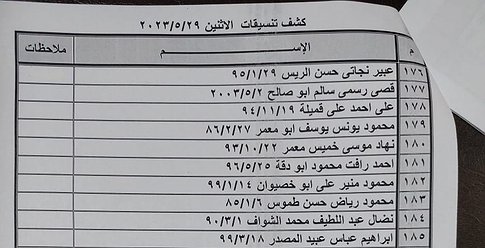 كشف تنسيقات الاثنين ٢٠٢٣/٥/٢٩
م الإســـــم ملاحظات
١٧٦ عبير نجاتى حسن الريس ٩٥/١/٢٩
١٧٧ قصى رسمى سالم ابو صالح ٢٠٠٣/٥/٢
١٧٨ على احمد على قميلة ٩٤/١١/١٩
١٧٩ محمود يونس يوسف ابو معمر ٨٦/٢/٢٧
١٨٠ نهاد موسى خميس معمر ٩٣/١٠/٢٢
١٨١ احمد رافت محمود ابو دقة ٩٦/٥/٢٥
١٨٢ محمود منير على ابو خصيوان ٩٩/١/١٤
١٨٣ محمود رياض حسن طموس ٨٥/١/٦
١٨٤ نضال عبد اللطيف محمد الشواف ٩٠/٣/١
١٨٥ ابراهيم عباس عبيد المصدر ٩٩/٣/١٨